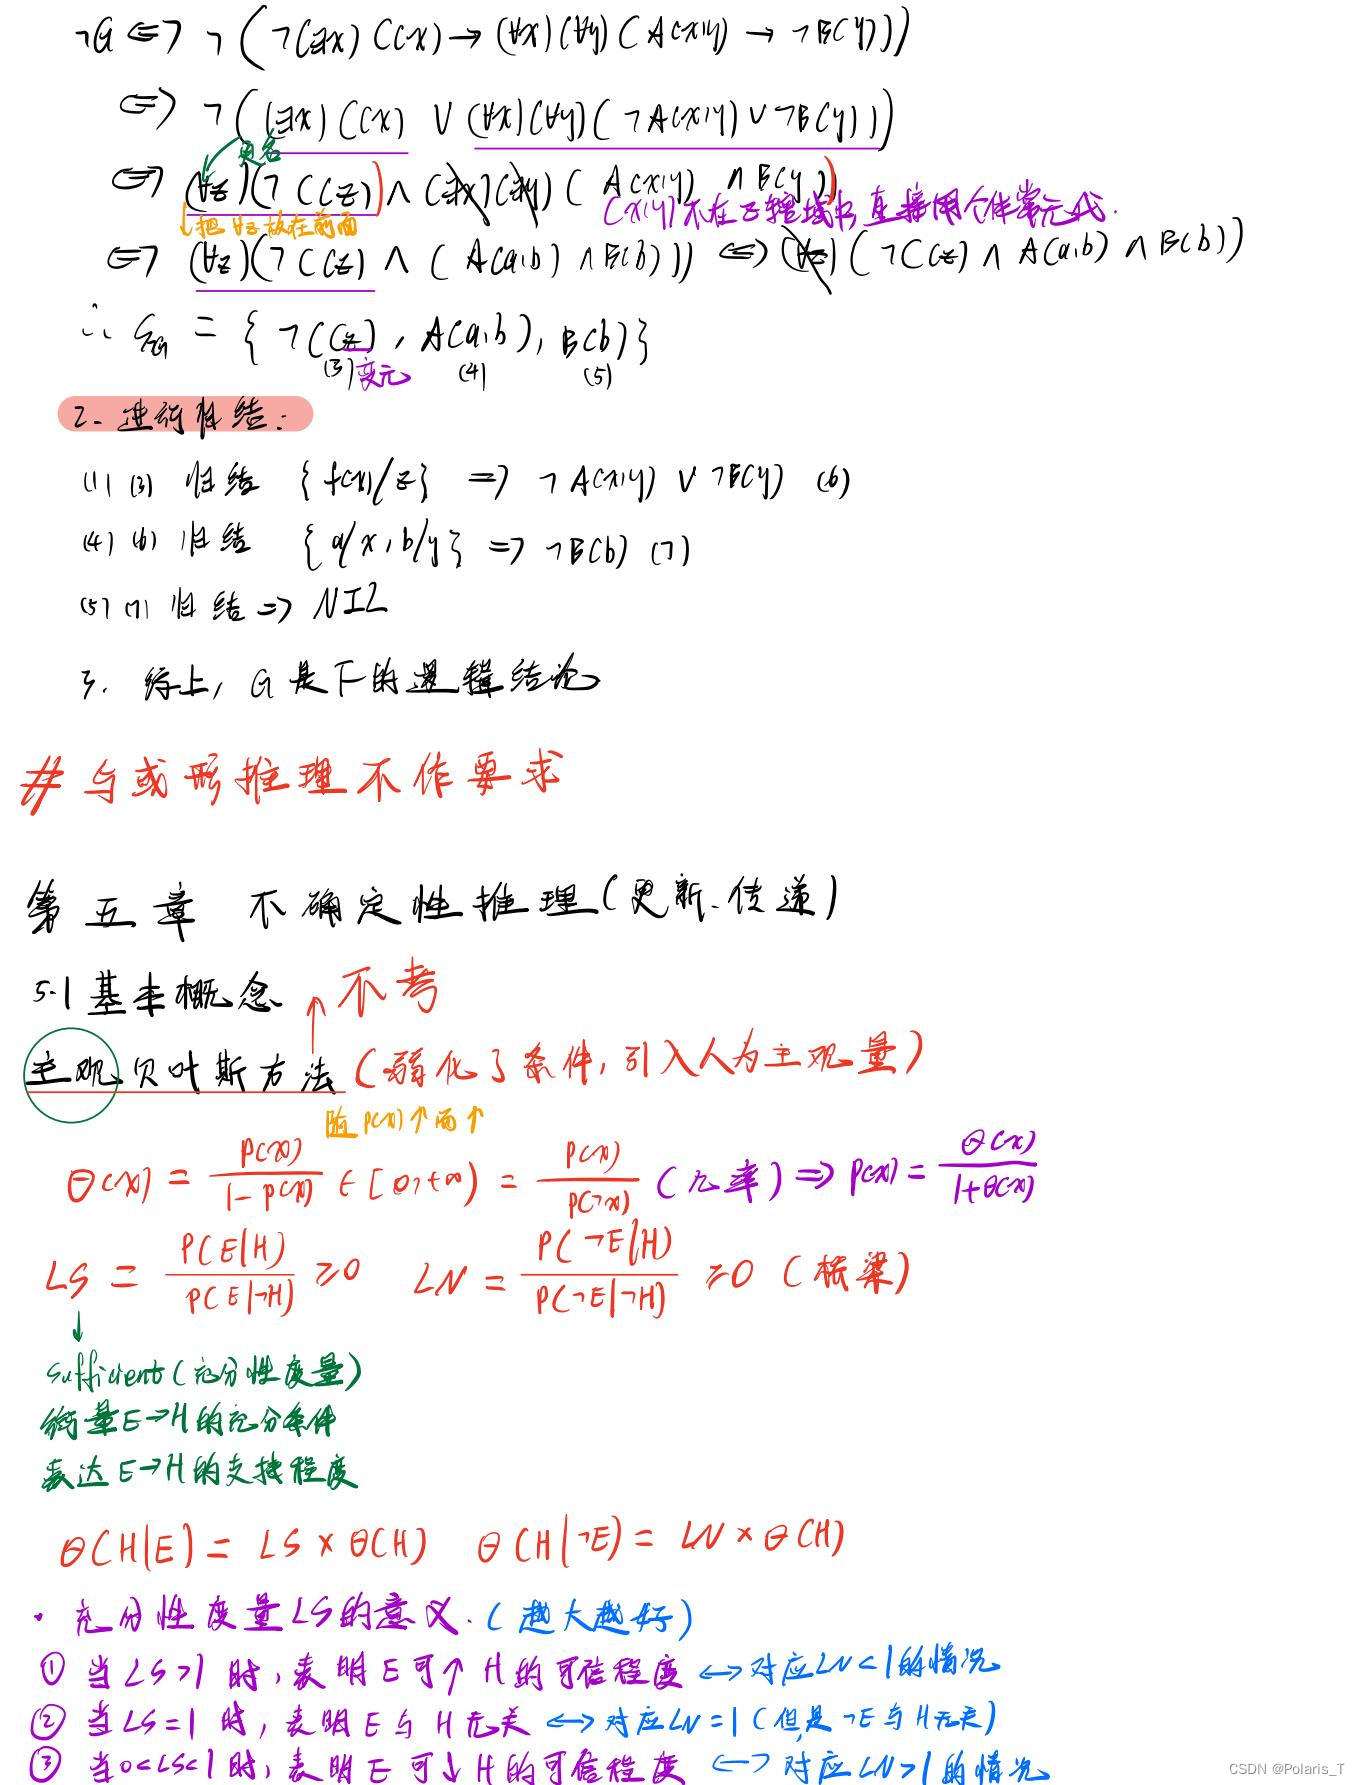 ¬G ⇔ ¬(¬(∃x)C(x) → (∀x)(∀y)(A(x,y) → ¬B(y)))
⇔ ¬((∃x)C(x) ∨ (∀x)(∀y)(¬A(x,y) ∨ ¬B(y)))
更名
⇔ (∀z)(¬C(z)) ∧ (∃x)(∃y)(A(x,y) ∧ B(y))
把∀z放在前面
(x,y)不在z辖域中,直接用个体常元代.
⇔ (∀z)(¬C(z) ∧ (A(a,b) ∧ B(b))) ⇔ (∀z)(¬C(z) ∧ A(a,b) ∧ B(b))
∴ S¬G = {¬C(z), A(a,b), B(b)}
(3) 变元 (4) (5)
2. 进行归结:
(1) (3) 归结 {f(x)/z} ⇒ ¬A(x,y) ∨ ¬B(y) (6)
(4) (6) 归结 {a/x, b/y} ⇒ ¬B(b) (7)
(5) (7) 归结 ⇒ NIL
3. 综上, G是F的逻辑结论
# 与或形推理不作要求
第五章 不确定性推理(更新、传递)
5.1 基本概念 不考
主观贝叶斯方法 (弱化了条件, 引入人为主观量)
随P(x)↑而↑
Θ(x) = P(x)/(1-P(x)) ∈ [0,+∞) = P(x)/P(¬x) (几率) ⇒ P(x) = Θ(x)/(1+Θ(x))
LS = P(E|H)/P(E|¬H) ≥0 LN = P(¬E|H)/P(¬E|¬H) ≥0 (桥梁)
↓
sufficient(充分性度量)
衡量E→H的充分条件
表达E→H的支持程度
Θ(H|E) = LS × Θ(H) Θ(H|¬E) = LN × Θ(H)
· 充分性度量LS的意义. (越大越好)
① 当LS>1时, 表明E可↑H的可信程度 ↔ 对应LN<1的情况
② 当LS=1时, 表明E与H无关 ↔ 对应LN=1(但是¬E与H无关)
③ 当0<LS<1时, 表明E可↓H的可信程度 ↔ 对应LN>1的情况
CSDN @Polaris_T